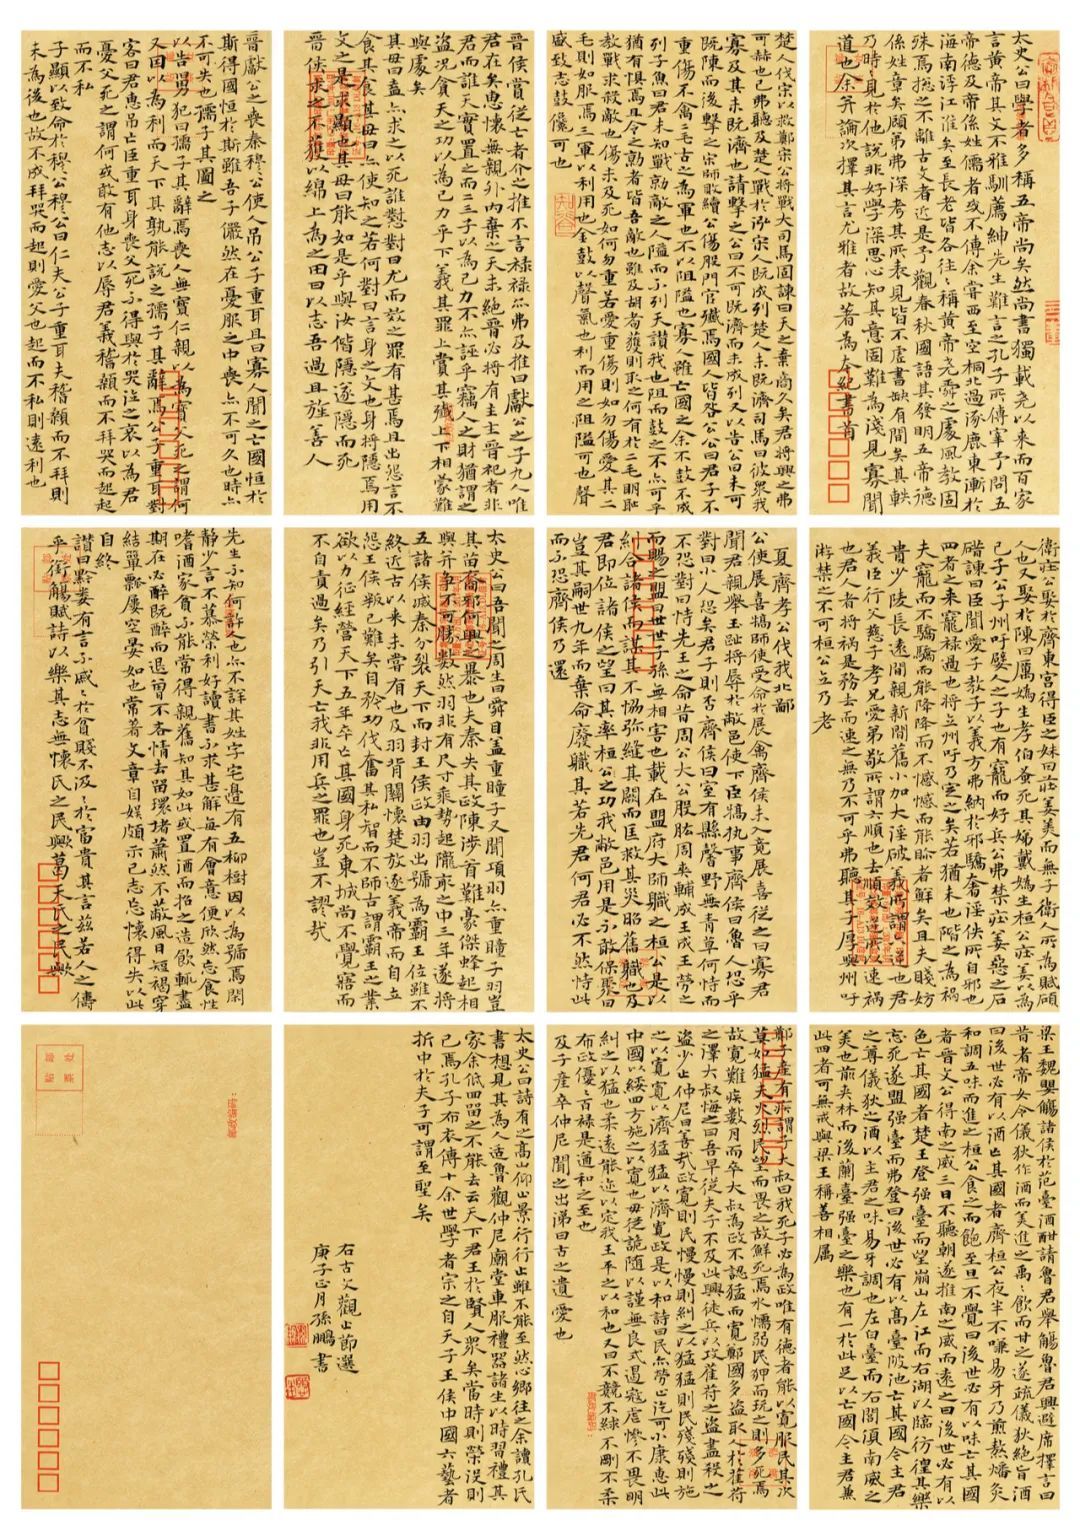 太史公曰學者多稱五帝尚矣然尚書獨載堯以來而百家
言黃帝其文不雅馴薦紳先生難言之孔子所傳宰予問五
帝德及帝係姓儒者或不傳余嘗西至空桐北過涿鹿東漸於
海南浮江淮矣至長老皆各往往稱黃帝堯舜之處風教固
殊焉總之不離古文者近是予觀春秋國語其發明五帝德
係姓章矣顧弟弗深考其所表見皆不虛書缺有間矣其軼
乃時時見於他說非好學深思心知其意固難為淺見寡聞
道也余并論次擇其言尤雅者故著為本紀書首
楚人伐宋以救鄭宋公將戰大司馬固諫曰天之棄商久矣君將興之弗
可赦也已弗聽及楚人戰於泓宋人既成列楚人未既濟司馬曰彼眾我
寡及其未既濟也請擊之公曰不可既濟而未成列又以告公曰未可
既陳而後擊之宋師敗績公傷股門官殲焉國人皆咎公公曰君子不
重傷不禽二毛古之為軍也不以阻隘也寡人雖亡國之餘不鼓不成
列子魚曰君未知戰勍敵之人隘而不列天讚我也阻而鼓之不亦可乎
猶有懼焉且今之勍者皆吾敵也雖及胡耇獲則取之何有於二毛明恥
教戰求殺敵也傷未及死如何勿重若愛重傷則如勿傷愛其二
毛則如服焉三軍以利用也金鼓以聲氣也利而用之阻隘可也聲
盛致志鼓儳可也
晉侯賞從亡者介之推不言祿祿亦弗及推曰獻公之子九人唯
君在矣惠懷無親外內棄之天未絕晉必將有主主晉祀者非
君而誰天實置之而二三子以為己力不亦誣乎竊人之財猶謂之
盜況貪天之功以為己力乎下義其罪上賞其姦上下相蒙難
與處矣
其母曰盍亦求之以死誰懟對曰尤而效之罪有甚焉且出怨言不
食其食其母曰亦使知之若何對曰言身之文也身將隱焉用
文之是求顯也其母曰能如是乎與汝偕隱遂隱而死
晉侯求之不獲以綿上為之田曰以志吾過且旌善人
晉獻公之喪秦穆公使人弔公子重耳且曰寡人聞之亡國恒於
斯得國恒於斯雖吾子儼然在憂服之中喪亦不可久也時亦
不可失也孺子其圖之
以告舅犯曰孺子其辭焉喪人無寶仁親以為寶父死之謂何
又因以為利而天下其孰能說之孺子其辭焉公子重耳對
客曰君惠弔亡臣重耳身喪父死不得與於哭泣之哀以為君
憂父死之謂何或敢有他志以辱君義稽顙而不拜哭而起起
而不私
子顯以致命於穆公穆公曰仁夫公子重耳夫稽顙而不拜則
未為後也故不成拜哭而起則愛父也起而不私則遠利也
衛莊公娶於齊東宮得臣之妹曰莊姜美而無子衛人所為賦碩
人也又娶於陳曰厲媯生孝伯蚤死其娣戴媯生桓公莊姜以為
己子公子州吁嬖人之子也有寵而好兵公弗禁莊姜惡之石
碏諫曰臣聞愛子教子以義方弗納於邪驕奢淫佚所自邪也
四者之來寵祿過也將立州吁乃定之矣若猶未也階之為禍
夫寵而不驕驕而能降降而不憾憾而能眕者鮮矣且夫賤妨
貴少陵長遠間親新間舊小加大淫破義所謂六逆也君
義臣行父慈子孝兄愛弟敬所謂六順也去順效逆所以速禍
也君人者將禍是務去而速之無乃不可乎弗聽其子厚與州吁
游禁之不可桓公立乃老
夏齊孝公伐我北鄙
公使展喜犒師使受命於展禽齊侯未入竟展喜從之曰寡君
聞君親舉玉趾將辱於敝邑使下臣犒執事齊侯曰魯人恐乎
對曰小人恐矣君子則否齊侯曰室有縣罄野無青草何恃而
不恐對曰恃先王之命昔周公大公股肱周室夾輔成王成王勞之
而賜之盟曰世世子孫無相害也載在盟府大師職之桓公是以
糾合諸侯而謀其不協彌縫其闕而匡救其災昭舊職也及
君即位諸侯之望曰其率桓公之功我敝邑用是不敢保聚曰
豈其嗣世九年而棄命廢職其若先君何君必不然恃此
而不恐齊侯乃還
太史公曰吾聞之周生曰舜目蓋重瞳子又聞項羽亦重瞳子羽豈
其苗裔邪何興之暴也夫秦失其政陳涉首難豪傑蜂起相
與并爭不可勝數然羽非有尺寸乘勢起隴畝之中三年遂將
五諸侯滅秦分裂天下而封王侯政由羽出號為霸王位雖不
終近古以來未嘗有也及羽背關懷楚放逐義帝而自立
怨王侯叛己難矣自矜功伐奮其私智而不師古謂霸王之業
欲以力征經營天下五年卒亡其國身死東城尚不覺寤而
不自責過矣乃引天亡我非用兵之罪也豈不謬哉
先生不知何許人也亦不詳其姓字宅邊有五柳樹因以為號焉閑
靜少言不慕榮利好讀書不求甚解每有會意便欣然忘食性
嗜酒家貧不能常得親舊知其如此或置酒而招之造飲輒盡
期在必醉既醉而退曾不吝情去留環堵蕭然不蔽風日短褐穿
結簞瓢屢空晏如也常著文章自娛頗示己志忘懷得失以此
自終
讚曰黔婁有言不戚戚於貧賤不汲汲於富貴其言茲若人之儔
乎銜觴賦詩以樂其志無懷氏之民歟葛天氏之民歟
梁王魏嬰觴諸侯於范臺酒酣請魯君舉觴魯君興避席擇言曰
昔者帝女令儀狄作酒而美進之禹禹飲而甘之遂疏儀狄絕旨酒
曰後世必有以酒亡其國者齊桓公夜半不嗛易牙乃煎熬燔炙
和調五味而進之桓公食之而飽至旦不覺曰後世必有以味亡其國
者晉文公得南之威三日不聽朝遂推南之威而遠之曰後世必有以
色亡其國者楚王登強臺而望崩山左江而右湖以臨彷徨其樂
忘死遂盟強臺而弗登曰後世必有以高臺陂池亡其國今主君
之尊儀狄之酒也主君之味易牙調也左白臺而右閭須南威之
美也前夾林而後蘭臺強臺之樂也有一於此足以亡國今主君兼
此四者可無戒與梁王稱善相屬
鄭子產有疾謂子大叔曰我死子必為政唯有德者能以寬服民其次
莫如猛夫火烈民望而畏之故鮮死焉水懦弱民狎而玩之則多死焉
故寬難疾數月而卒大叔為政不忍猛而寬鄭國多盜取人於萑苻
之澤大叔悔之曰吾早從夫子不及此興徒兵以攻萑苻之盜盡殺之
盜少止仲尼曰善哉政寬則民慢慢則糾之以猛猛則民殘殘則施
之以寬寬以濟猛猛以濟寬政是以和詩曰民亦勞止汔可小康惠此
中國以綏四方施之以寬也毋從詭隨以謹無良式遏寇虐慘不畏明
糾之以猛也柔遠能邇以定我王平之以和也又曰不競不絿不剛不柔
布政優優百祿是遒和之至也
及子產卒仲尼聞之出涕曰古之遺愛也
太史公曰詩有之高山仰止景行行止雖不能至然心鄉往之余讀孔氏
書想見其為人適魯觀仲尼廟堂車服禮器諸生以時習禮其
家余低回留之不能去云天下君王於賢人眾矣當時則榮沒則
已焉孔子布衣傳十餘世學者宗之自天子王侯中國六藝者
折中於夫子可謂至聖矣
右古文觀止節選
庚子正月孫鵬書